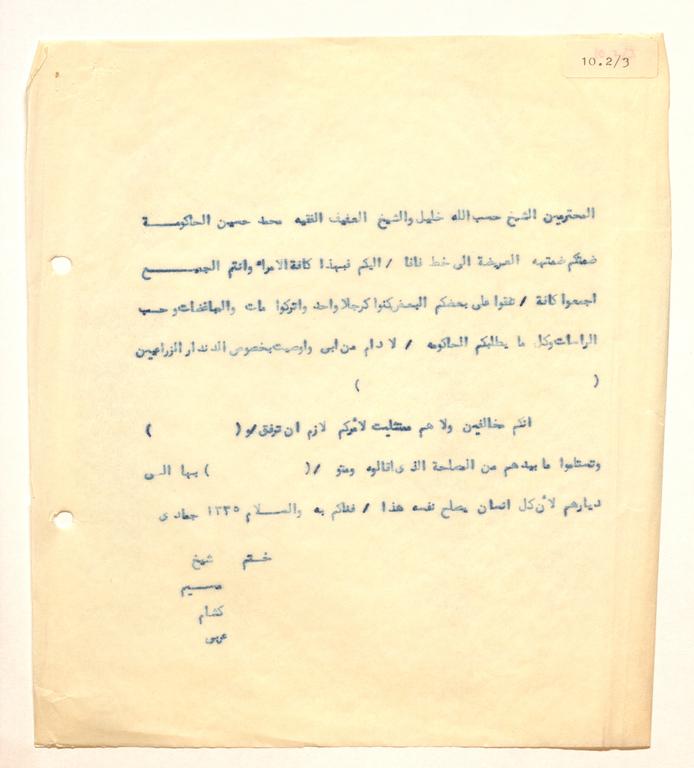 10.2/3
المحترمين الشيخ حسب الله خليل والشيخ العفيف الفقيه محمد حسين الحاكومة
ضمتكم ضمتهه العريضة الى خط نانا / اليكم فبهذا كافة الامراء وانتم الجميع
اجمعوا كافة / تفقوا على بعضكم البعض كنوا كرجلا واحد واتركوا مات وحسب
الراسات وكل ما يطلبكم الحاكومه / لا دام من ابى واوصيت بخصوص الدندار الزراعيين
( )
انكم مخالفين ولا هم ممتثليت لأمركم لازم ان توفق /و ( )
وتستلموا ما بيدهم من الصلحة الذى انالوه ومتو /( ) بها الى
ديارهم لأن كل انسان يصلح نفسه هذا / فناكم به والسلام ١٣٣٥ جمادى
ختم شيخ
كشام
عربى